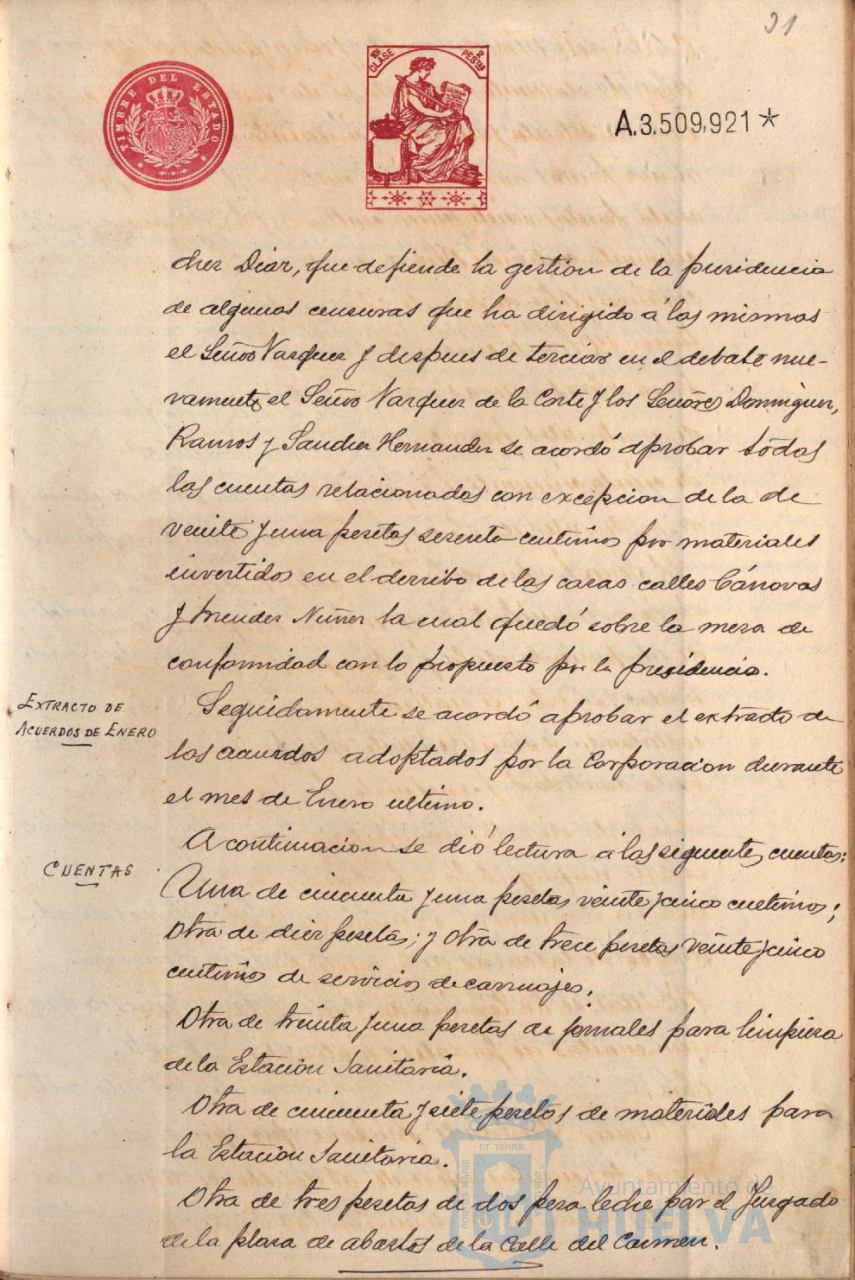 31
TIMBRE DEL ESTADO
10ª CLASE 2 PESTAS
A.3.509,921*
chez Diaz, que defiende la gestion de la presidencia
de algunas censuras que ha dirigido á las mismas
el Señor Vazquez y despues de terciar en el debate nue-
vamente el Señor Vazquez de la Corte y los Señores Dominguez,
Ramos y Sanchez Hernandez se acordó aprobar todas
las cuentas relacionadas con excepcion de la de
veinte y una pesetas sesenta centimos por materiales
invertidos en el derribo de las casas calles Cánovas
y Mendez Nuñez la cual quedó sobre la mesa de
conformidad con lo propuesto por la presidencia.
EXTRACTO DE
ACUERDOS DE ENERO
Seguidamente se acordó aprobar el extracto de
los acuerdos adoptados por la Corporacion durante
el mes de Enero ultimo.
CUENTAS
A continuacion se dió lectura á las siguientes cuentas:
Una de cincuenta y una pesetas veinte y cinco centimos;
Otra de diez pesetas; y otra de trece pesetas veinte y cinco
centimos de servicios de carruajes.
Otra de treinta y una pesetas de jornales para limpieza
de la Estacion Sanitaria.
Otra de cincuenta y siete pesetas de materiales para
la Estacion Sanitaria.
Otra de tres pesetas de dos pesa leche par el Juzgado
de la plaza de abastos de la Calle del Carmen.
ET TERRÆ
Ayuntamiento de
HUELVA